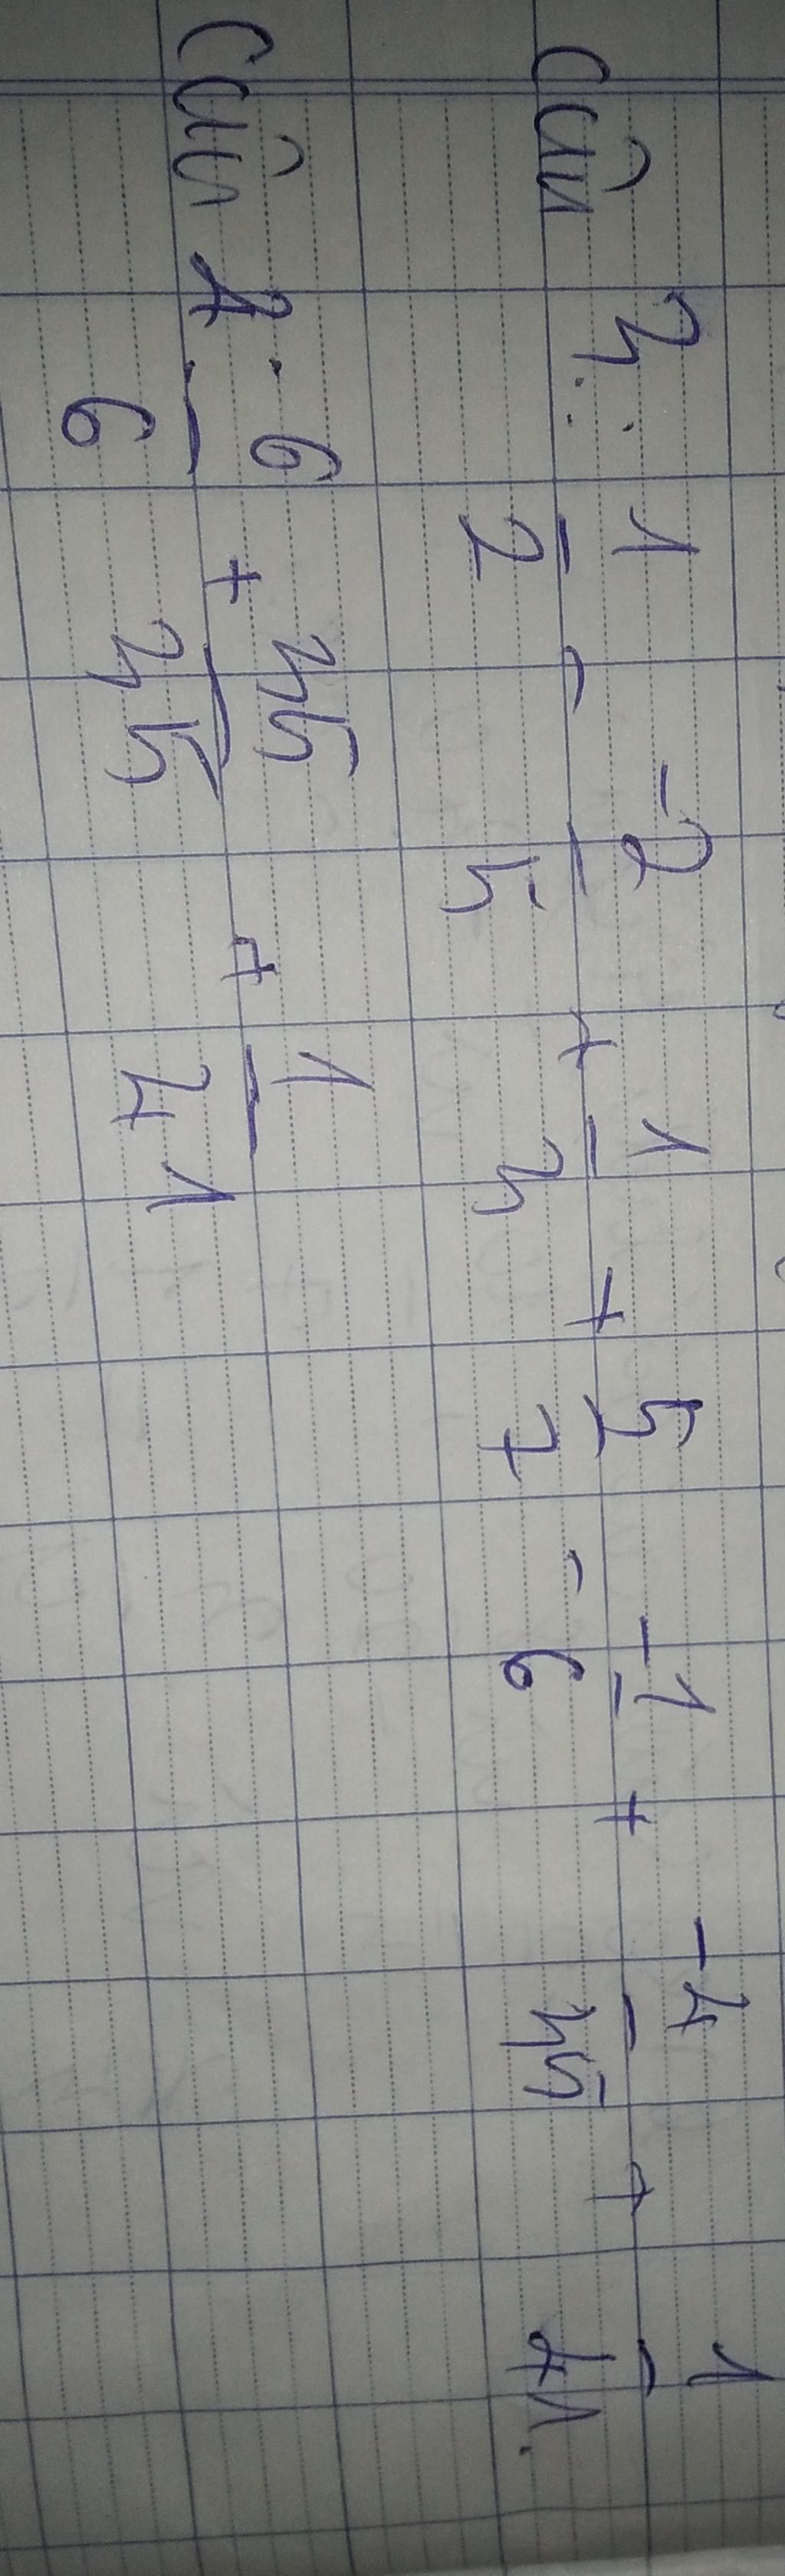 Câu 3: 1/2 - -2/5 + 1/3 + 5/7 - -1/6 + -4/35 + 1/41.
Câu 4: 6/6 + 35/35 + 1/41